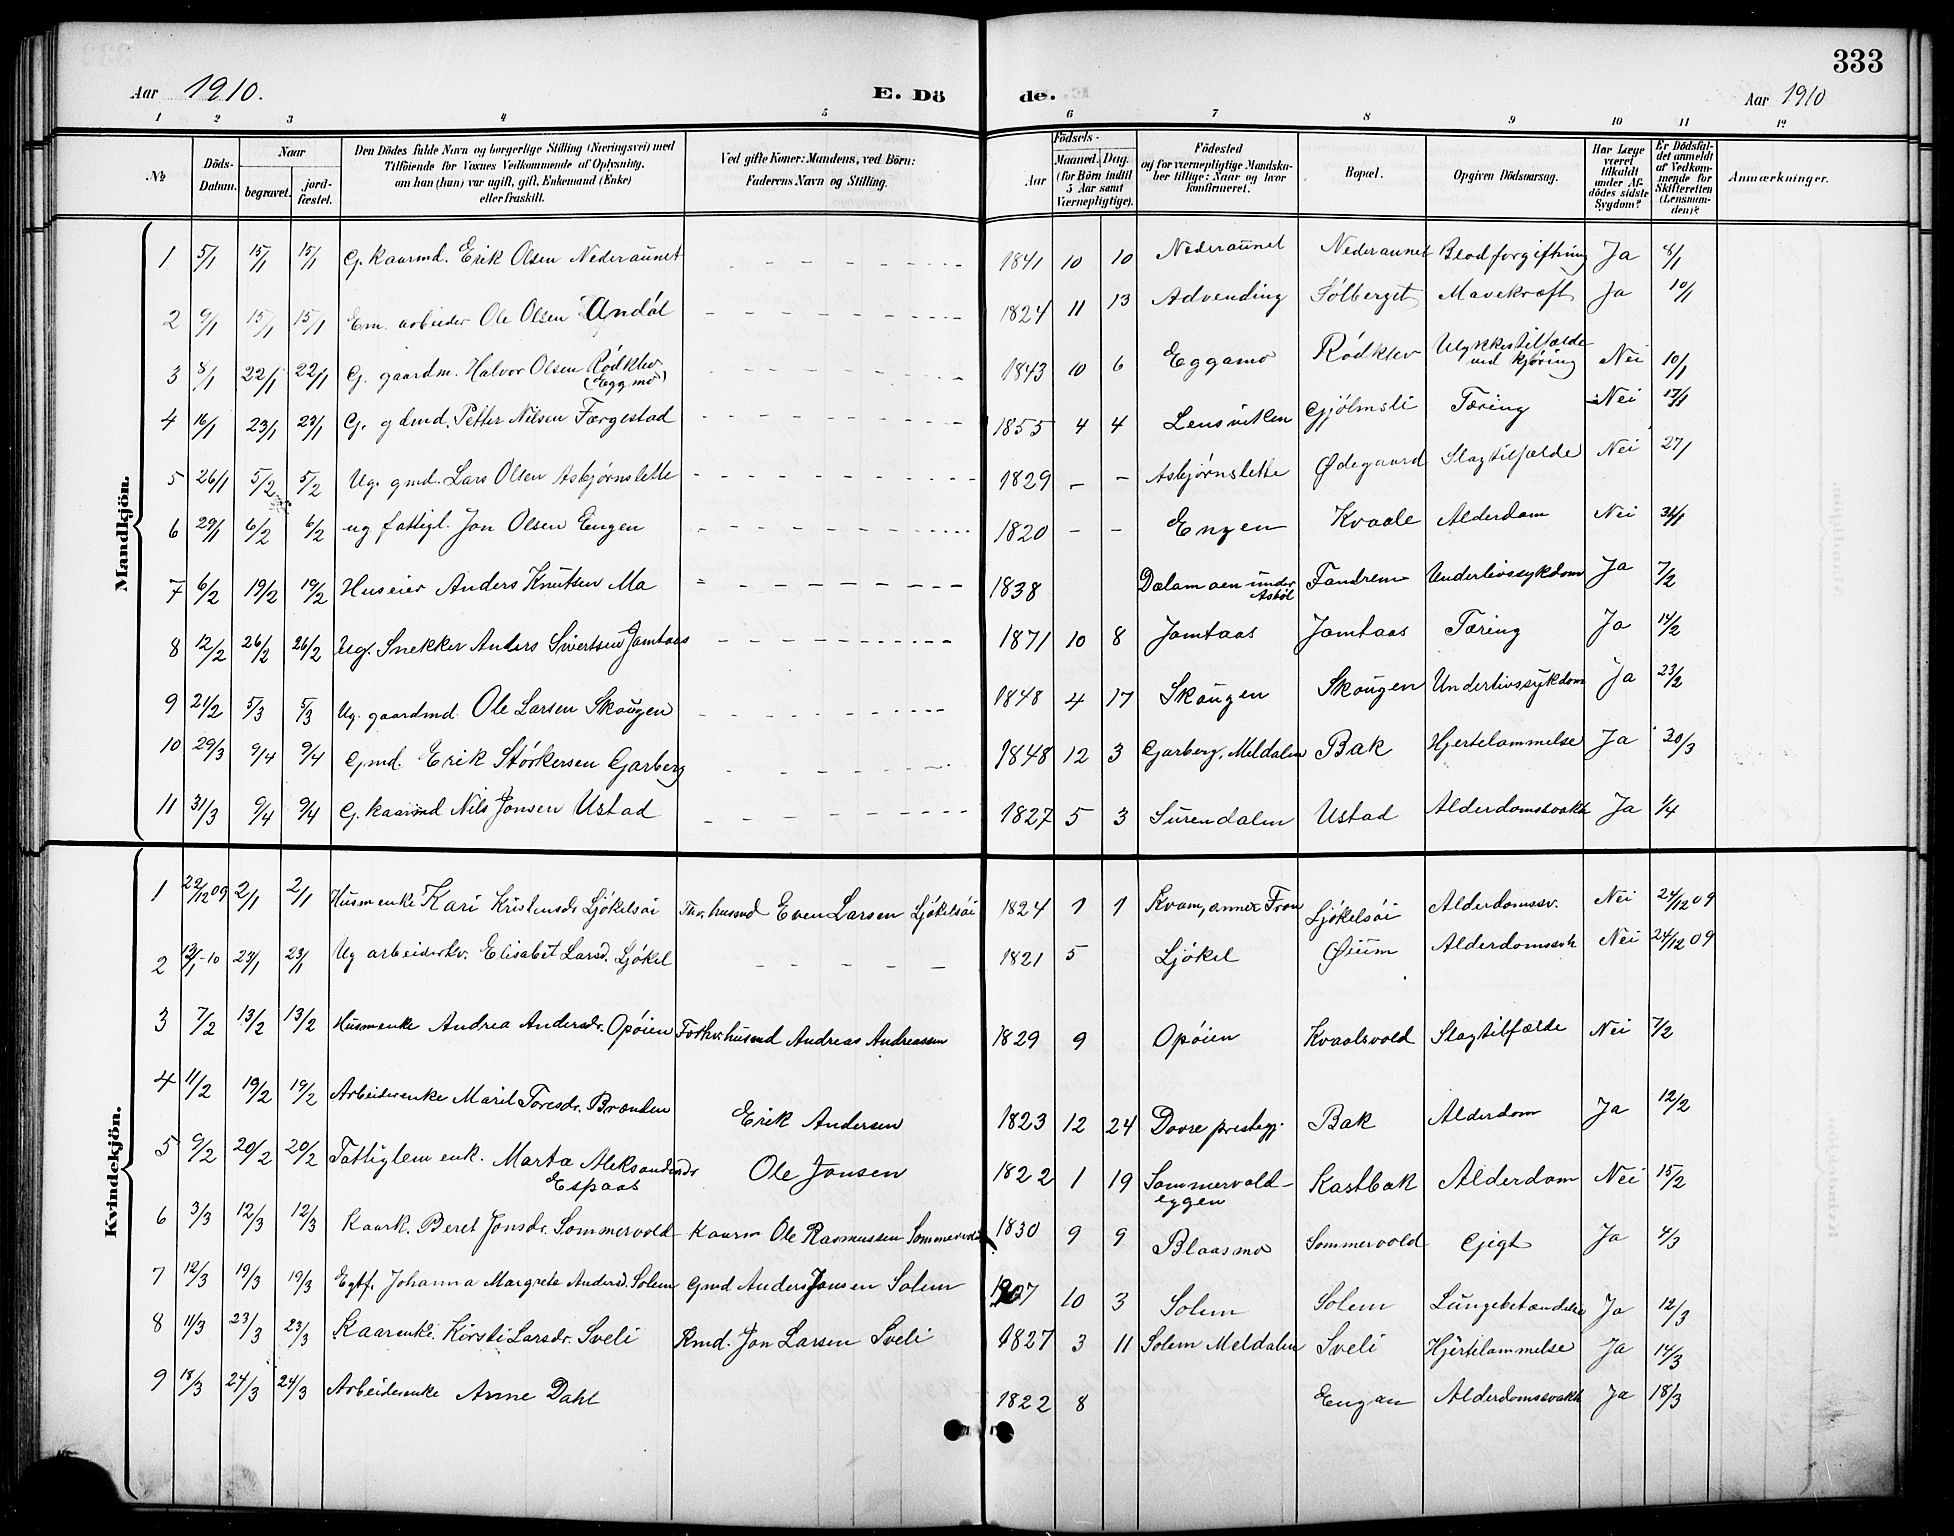 333
Aar 1910. E. Döde. Aar 1910
1 2 3 4 5 6 7 8 9 10 11 12
No Döds-Datum. Naar begravet. jordfæstet. Den Dödes fulde Navn og borgerlige Stilling (Næringsvei) med Tilföiende for Voxnes Vedkommende af Oplysning, om han (hun) var ugift, gift, Enkemand (Enke) eller fraskilt. Ved gifte Koner: Mandens, ved Börn: Faderens Navn og Stilling. Födsels- Aar Maaned. Dag. (for Börn indtil 5 Aar samt Værnepligtige). Födested og for værnepligtige Mandskaber tillige: Naar og hvor konfirmeret. Bopæl. Opgiven Dödsaarsag. Har Læge været tilkaldt under Afdödes sidste Sygdom? Er Dödsfaldet anmeldt af Vedkommende for Skifteretten (Lensmanden)? Anmærkninger.
Mandkjön.
1 5/1 15/1 15/1 G. kaarmd. Erik Olsen Nederaunet 1841 10 10 Nederaunet Nederaunet Blodforgiftning Ja 8/1
2 9/1 15/1 15/1 Em. arbeider Ole Olsen Undöl 1824 11 13 Advending Sölberget Mavekræft Ja 10/1
3 8/1 22/1 22/1 G. gaardm. Halvor Olsen Rödklev (Eggmo) 1843 10 6 Eggamo Rödklev Ulykkestilfælde ved kjöring Nei 10/1
4 16/1 23/1 23/1 G. gdmd. Petter Nilsen Færgestad 1855 4 4 Lensviken Gjölmsli Tæring Nei 17/1
5 26/1 5/2 5/2 Ug. gmd. Lars Olsen Asbjørnslette 1829 – – Asbjørnslette Ødegaard Slagtilfælde Nei 27/1
6 29/1 6/2 6/2 ug fattigl. Jon Olsen Engen 1820 – – Engen Kvaale Alderdom Nei 31/1
7 6/2 19/2 19/2 Huseier Anders Knutsen Mo 1838 Dælamoen under Asböl Fandrem Underlivssykdom Ja 7/2
8 12/2 26/2 26/2 Ug. Snekker Anders Sivertsen Jamtaas 1871 10 8 Jamtaas Jamtaas Tæring Ja 14/2
9 21/2 5/3 5/3 Ug. gaardmd. Ole Larsen Skougen 1848 4 17 Skougen Skougen Underlivssykdom Ja 23/2
10 29/3 9/4 9/4 Gmd. Erik Störkersen Garberg 1848 12 3 Garberg, Meldalen Bak Hjertelammelse Ja 30/3
11 31/3 9/4 9/4 G. kaarmd Nils Jonsen Ustad 1827 5 3 Surendalen Ustad Alderdomssvakh Ja 1/4
Kvindekjön.
1 22/12 09 2/1 2/1 Husmenke Kari Kristensdr Ljökelsöi Husmd Even Larsen Ljökelsöi 1824 1 1 Kvam, annex Fron Ljökelsöi Alderdomssv. Nei 24/12 09
2 13/1-10 23/1 23/1 Ug arbeiderkv. Elisabet Larsd. Ljökel 1821 5 Ljökel Øium Alderdomssvh Nei 24/12 09
3 7/2 13/2 13/2 Husmenke Andrea Andersdr. Opöien Forhv. husmd Andreas Andreassen 1829 9 Opöien Kvaalsvold Slagtilfælde Nei 7/2
4 11/2 19/2 19/2 Arbeiderenke Marit Toresdr. Brænden Erik Andersen 1823 12 24 Dovre prestegj. Bak Alderdom Ja 12/2
5 9/2 20/2 20/2 Fattiglem enk. Marta Aleksandersdr Espaas Ole Jonsen 1822 1 19 Sommervoldeggen Kastbak Alderdom Nei 15/2
6 3/3 12/3 12/3 Kaark. Beret Jonsdr. Sommervold Kaarm Ole Rasmussen Sommervold 1830 9 9 Blaasmo Sommervold Gigt Ja 4/3
7 12/3 19/3 19/3 Egtf. Johanna Margrete Andersd. Solem Gmd Anders Jonsen Solem 10 3 Solem Solem Lungebetændelse Ja 12/3
8 11/3 23/3 23/3 Kaarenke. Kirsti Larsdr. Sveli Kmd. Jon Larsen Sveli 1827 3 11 Solem Meldalen Sveli Hjertelammelse Ja 14/3
9 18/3 24/3 24/3 Arbeiderenke Anne Dahl 1822 8 Engan Alderdomssvakh Ja 18/3